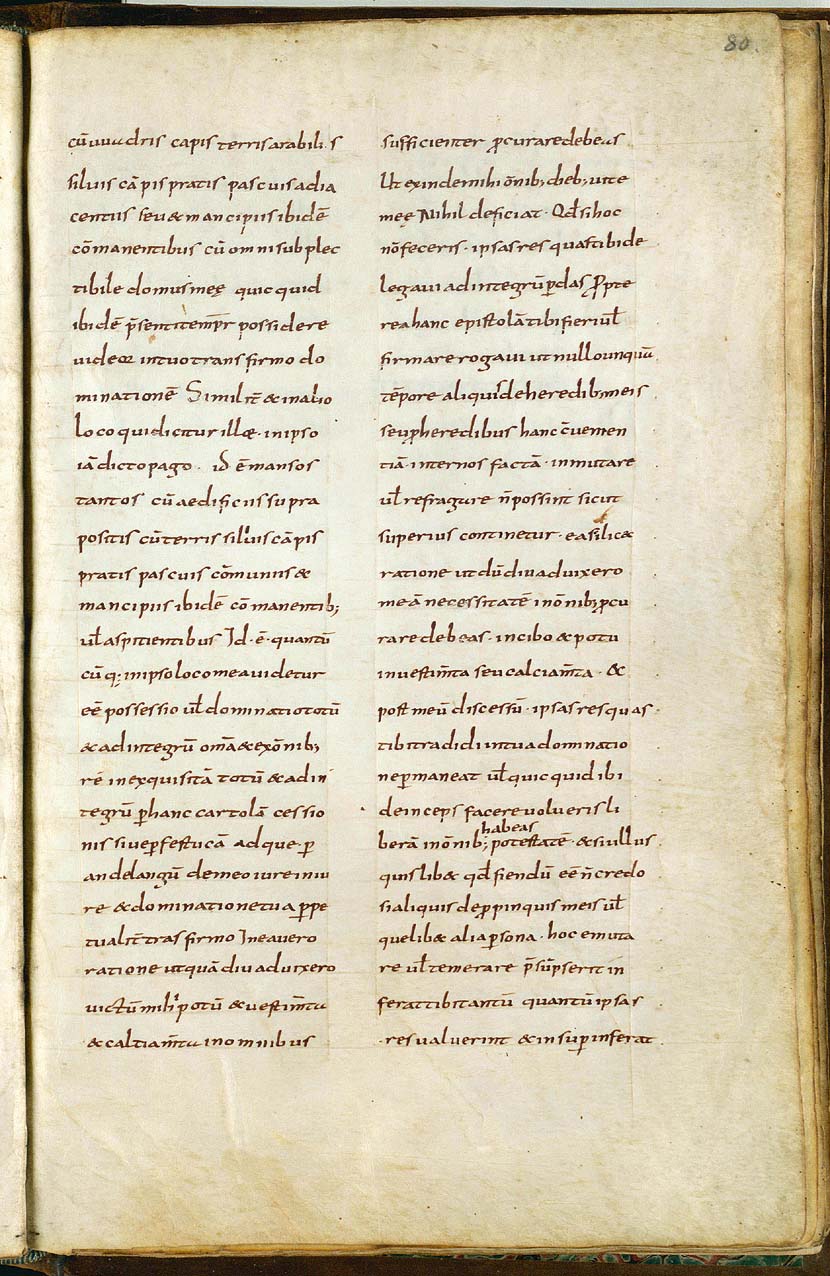 80.
cū uuadris capis terris arabilis
siluis cāpis pratis pascuis adia
centiis seu & mancipiis ibidē
cōmanentibus cū omni subplec
tibile domus meę quicquid
ibidē p̄senti tempr possidere
uideor in tuo transfirmo do
minationē Similit̄ & in alio
loco qui dicitur illæ· in ipso
iā dicto pago· id ē mansos
tantos cū aedificiis supra
positis cū terris siluis cāpis
pratis pascuis cōmuniis &
mancipiis ibidē cōmanentib;
ul̄ aspitientibus Id·ē· quantū
cū q; in ipso loco mea uidetur
eē possessio ul̄ dominatio totū
& ad integrū om̄a & ex ōnib;
rē inexquisitā totū & ad in
tegrū ꝑ hanc cartolā cessio
nis siue ꝑ festucā adque ꝑ
andelangū de meo iure in iu
re & dominatione tua ꝑpe
tualit̄ trasfirmo In ea uero
ratione ut quādiu aduixero
uictū mihi potū & uestim̄ta
& caltiam̄ta in omnibus
sufficienter ꝓcurare debeas
Ut exinde mihi ōnib; dieb; uite
meę Nihil deficiat· Qd̄ si hoc
nō feceris· ipsas res quas tibi de
legaui ad integrū ꝑdas ꝓpte
rea hanc epistolā tibi fieri ul̄
firmare rogaui ut nullo unquā
tēpore aliquis de heredib; meis
seu ꝓheredibus hanc c̄uenien
tiā· inter nos factā· inmutare
ul̄ refragare n̄ possint sicut
superius continetur· ea silic&
ratione ut dū diu aduixero
meā necessitatē in ōnib; ꝓcu
rare debeas· in cibo & potu
in uestim̄ta seu calciam̄ta· &
post meū discessū· ipsas res quas
tibi tradidi in tua dominatio
ne ꝑmaneat ul̄ quicquid ibi
deinceps facere uolueris li
habeas
berā in ōnib; potestatē· & si ullus
quislib& qd̄ fiendū eē n̄ credo
si aliquis de ꝓpinquis meis ul̄
quelib& alia ꝑsona· hoc emuta
re ul̄ temerare p̄sūpserit in
ferat tibi tantū quantū ipsas
res ualuerint & in suꝑ inferat